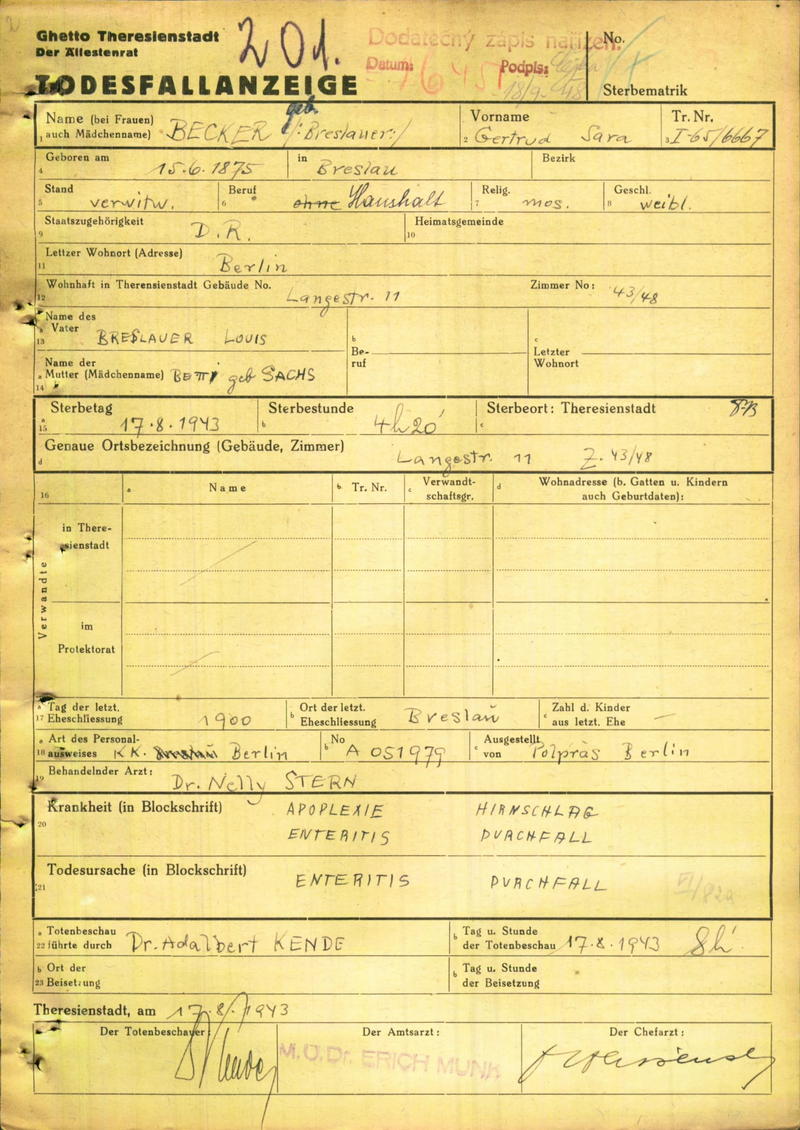 Ghetto Theresienstadt
Der Ältestenrat
201.
Dodatečný zápis nařízen:
Datum: Podpis:
18/9
No.
Sterbematrik
TODESFALLANZEIGE
Name (bei Frauen) auch Mädchenname) BECKER geb. /:Breslauer:/
Vorname Gertrud Sara
Tr. Nr. I-65/6667
Geboren am 15.6.1875 in Breslau Bezirk
Stand verwitw. Beruf ohne Haushalt Relig. mos. Geschl. weibl.
Staatszugehörigkeit D.R. Heimatsgemeinde
Letzter Wohnort (Adresse) Berlin
Wohnhaft in Theresienstadt Gebäude No. Langestr. 11 Zimmer No: 43/48
Name des Vater BRESLAUER LOUIS
Name der Mutter (Mädchenname) BETTY geb SACHS
Beruf
Letzter Wohnort
Sterbetag 17.8.1943 Sterbestunde 4h20' Sterbeort: Theresienstadt
Genaue Ortsbezeichnung (Gebäude, Zimmer) Langestr. 11 Z. 43/48
16 a Name b Tr. Nr. c Verwandtschaftsgr. d Wohnadresse (b. Gatten u. Kindern auch Geburtdaten):
Verwandte
in Theresienstadt
im Protektorat
Tag der letzt. Eheschliessung 1900 Ort der letzt. Eheschliessung Breslau Zahl d. Kinder aus letzt. Ehe —
Art des Personalausweises KK. Berlin No A 051979 Ausgestellt von Polpräs Berlin
Behandelnder Arzt: Dr. Nelly STERN
Krankheit (in Blockschrift) APOPLEXIE HIRNSCHLAG
ENTERITIS DURCHFALL
Todesursache (in Blockschrift) ENTERITIS DURCHFALL
Totenbeschau führte durch Dr. Adalbert KENDE Tag u. Stunde der Totenbeschau 17.8.1943 8h'
Ort der Beisetzung Tag u. Stunde der Beisetzung
Theresienstadt, am 17.8.1943
Der Totenbeschauer: Der Amtsarzt: Der Chefarzt:
M.U.Dr. ERICH MUNK